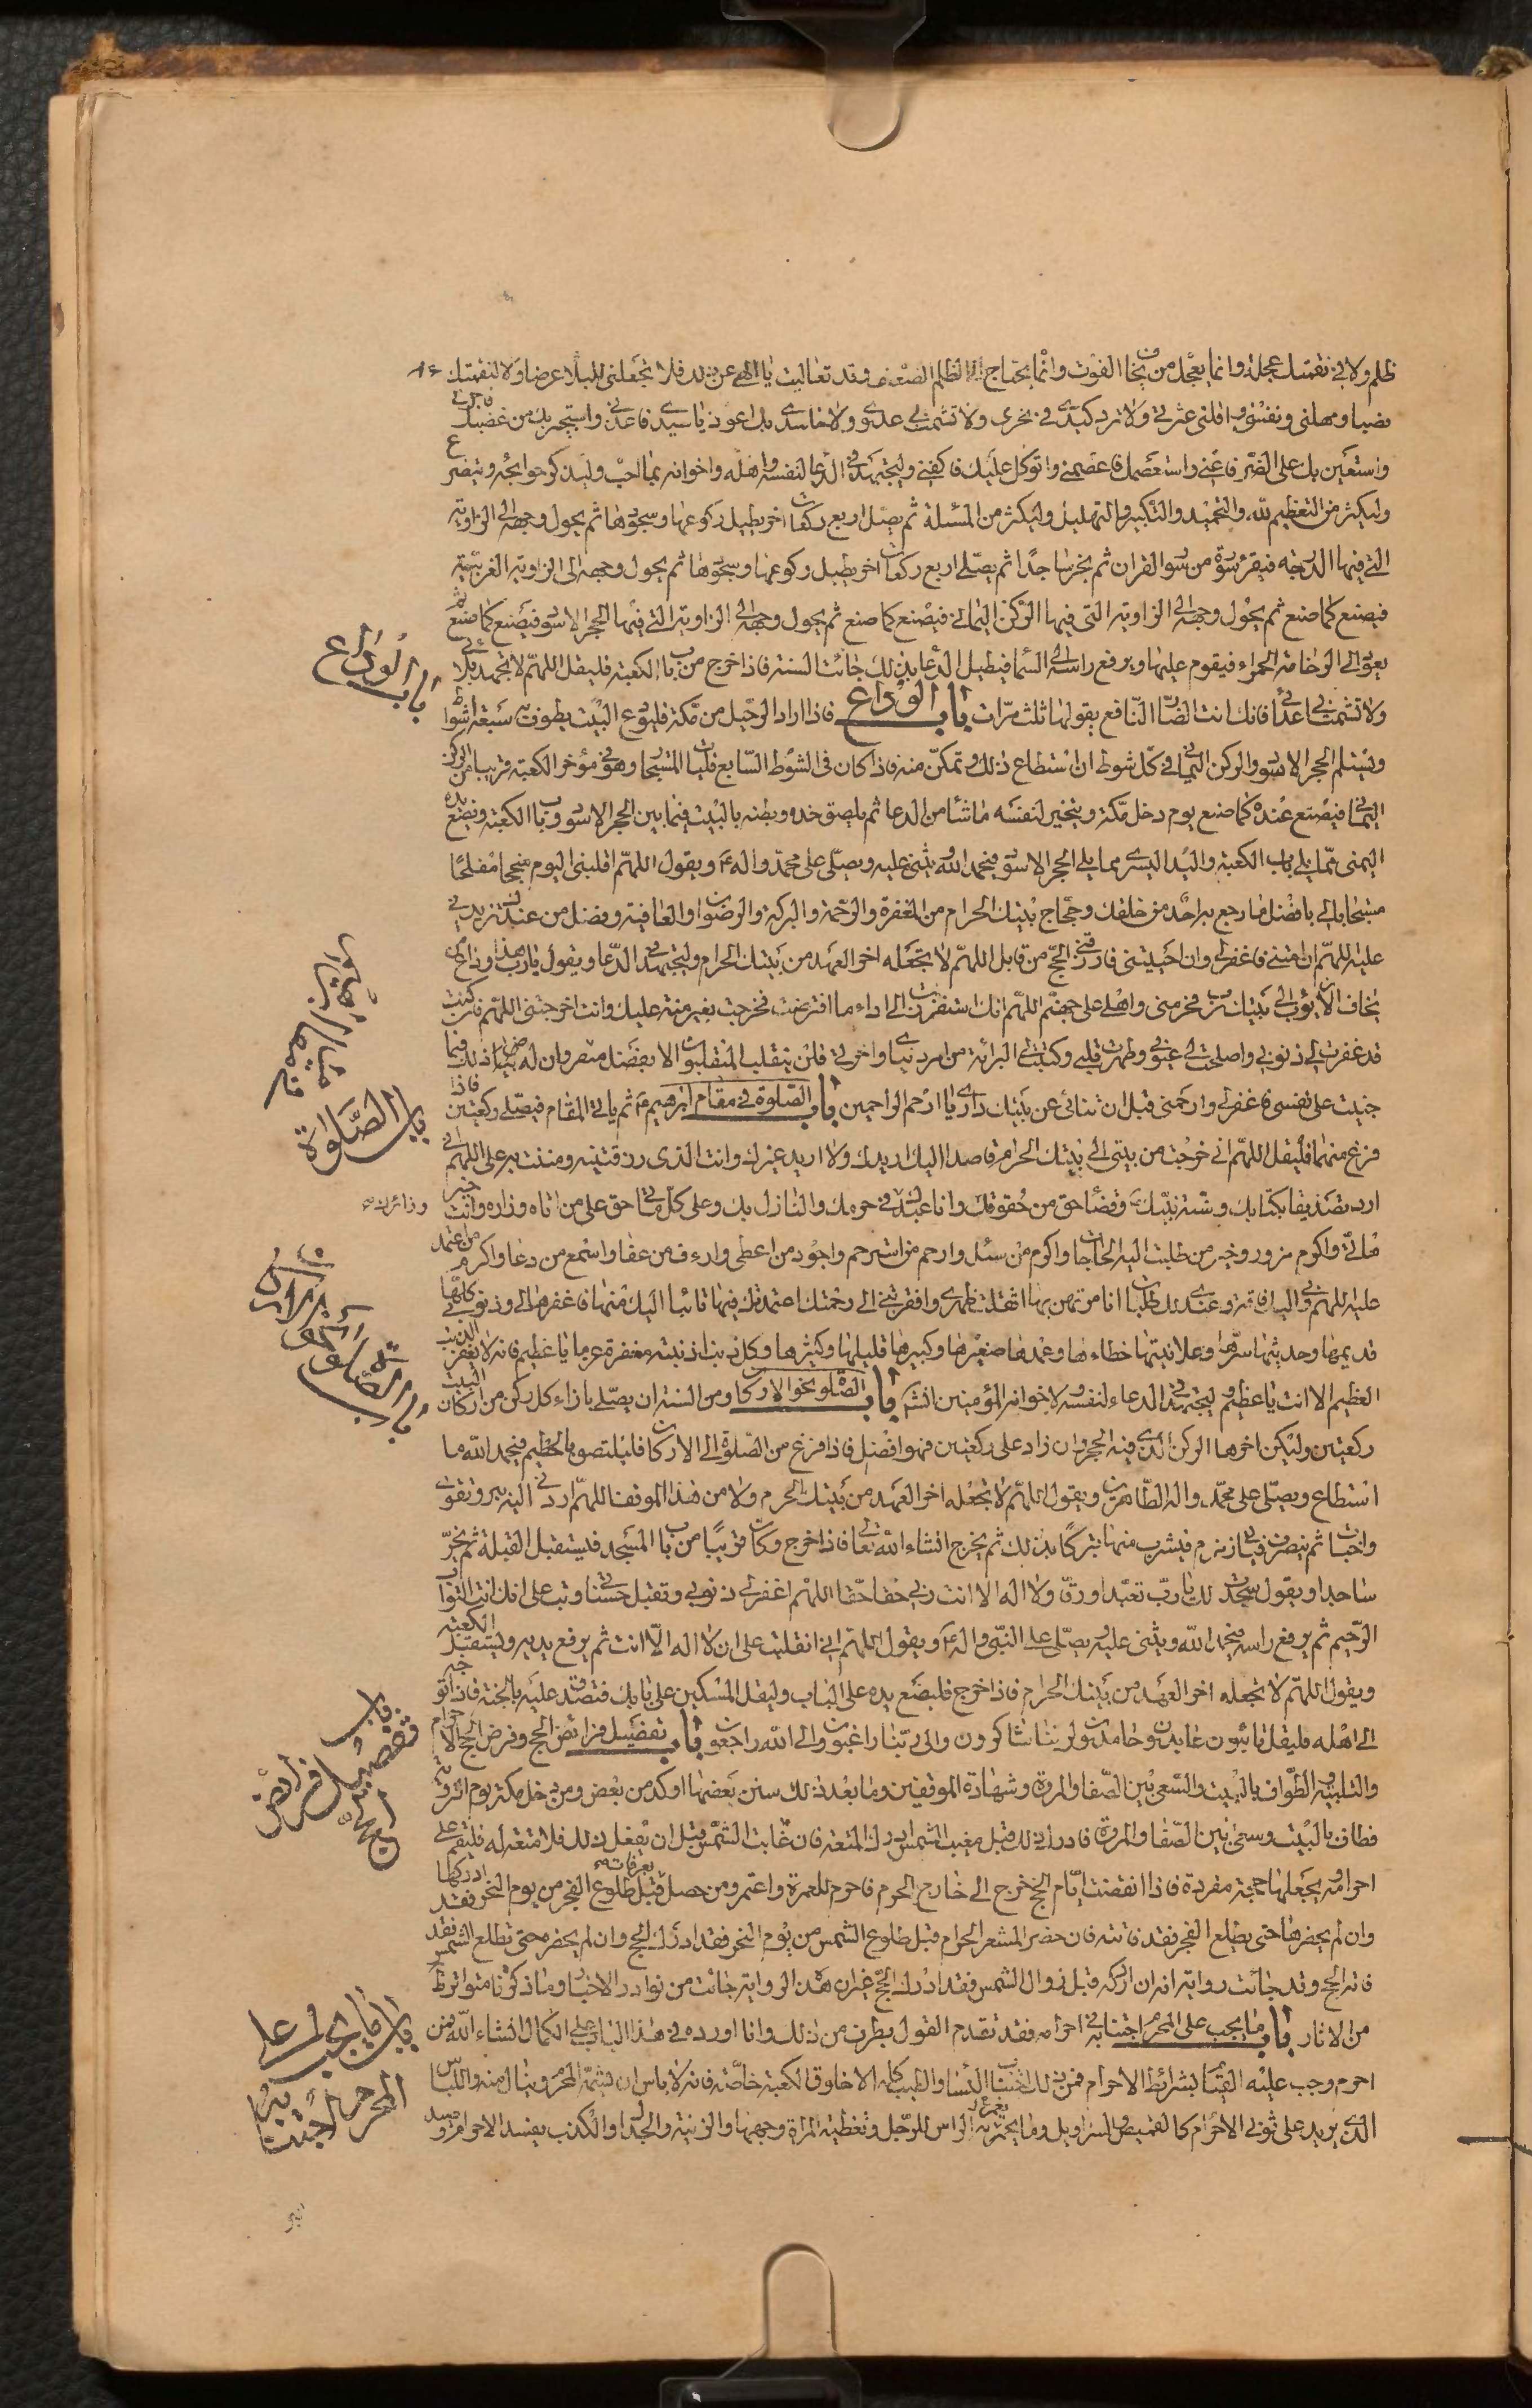 ظلم ولا فى نقمتك عجلة وانما يعجل من يخاف الفوت وانما يحتاج الى الظلم الضعيف وقد تعاليت يا الهى عن ذلك فلا تجعلنى للبلاء عرضا ولا لنقمتك
نصبا ومهلنى ونفسنى واقلنى عثرتى ولا ترد كيدى فى نحرى ولا تشمت بى عدوى ولا حاسدى بك اعوذ يا سيدى فاعذنى واستجير بك من غضبك
واستعين بك على الضر فاعنى واستعصمك فاعصمنى واتوكل عليك فاكفنى وليجتهد فى الدعا لنفسه واهله واخوانه بما احب وليذكر حوايجه ويتضرع
وليكثر من التعظيم لله والتحميد والتكبير والتهليل وليكثر من المسئلة ثم يصلى اربع ركعات اخر يطيل ركوعها وسجودها ثم يحول وجهه الى الزاوية
التى فيها الدرجه فيقرء سورة من سور القران ثم يخر ساجدا ثم يصلى اربع ركعات اخر يطيل ركوعها وسجودها ثم يحول وجهه الى الزاوية الغربية
فيصنع كما صنع ثم يحول وجهه الى الزاوية التى فيها الركن اليمانى فيصنع كما صنع ثم يحول وجهه الى الزاوية التى فيها الحجر الاسود فيصنع كما صنع ثم
يعود الى الرخامة الحمراء فيقوم عليها ويرفع راسه الى السماء فيطيل الدعا بذلك جائت السنة فاذا خرج من باب الكعبة فليقل اللهم لا تجهد بلائى
ولا تشمت بى اعدائى فانك انت الضار النافع يقولها ثلث مرات باب الوداع فاذا اراد الرحيل من مكة فليودع البيت يطوف به سبعة اشواط
ويستلم الحجر الاسود والركن اليمانى فى كل شوط ان استطاع ذلك وتمكن منه فاذا كان فى الشوط السابع فليات المستجار وهو فى مؤخر الكعبة قريبا من الركن
اليمانى فيصنع عنده كما صنع يوم دخل مكة ويتخير لنفسه ما شاء من الدعا ثم يلصق خده وبطنه بالبيت فيما بين الحجر الاسود وباب الكعبة ويضع يده
اليمنى مما يلى باب الكعبة واليد اليسرى مما يلى الحجر الاسود فيحمد الله ويثنى عليه ويصلى على محمد واله ع ويقول اللهم اقلبنى اليوم منجحا مفلحا
مستجابا لى بافضل ما رجع به احد من خلقك وحجاج بيتك الحرام من المغفرة والرحمة والبركة والرضوان والعافية وفضل من عندك تزيدنى
عليه اللهم ان امتنى فاغفر لى وان احييتنى فارزقنى الحج من قابل اللهم لا تجعله اخر العهد من بيتك الحرام وليجتهد فى الدعا ويقول يا رب هذا وداع من
يخاف الا يؤب الى بيتك اللهم انك استنفرت الى اداء ما افترضت فخرجت بغير منة عليك وانت اخرجتنى اللهم فان كنت
قد غفرت لى ذنوبى واصلحت لى عيوبى وطهرت قلبى وكتبت لى البرائة من امر دنياى واخرتى فلن ينقلب المنقلبون الا بفضل منك وان لم يكن ذلك فيما
جنيت على نفسى فاغفر لى وارحمنى قبل ان تنائى عن بيتك دارى يا ارحم الراحمين باب الصلوة فى مقام ابرهيم ع ثم ياتى المقام فيصلى ركعتين فاذا
فرغ منهما فليقل اللهم انى خرجت من بيتى الى بيتك الحرام قاصدا اليك اريدك ولا اريد غيرك وانت الذى رزقتنيه ومننت به على اللهم انى
اردت تصديقا بكتابك وسنة نبيك ع وقضاء حق من حقوقك وانا عبدك فى حرمك والنازل بك وعلى كل ماتى حق على من اتاه وزاره وانت خير
ماتى واكرم مزور وخير من طلبت اليه الحاجات واكرم من سئل وارحم من استرحم واجود من اعطى وارءف من عفا واسمع من دعا واكرم من اعتمد
عليه اللهم وبى اليك فاقة وعندى لك طلبات انا مرتهن بها اثقلت ظهرى وافقرتنى الى رحمتك اعتمدتك فيها تائبا اليك منها فاغفرها لى وذنوبى كلها
قديمها وحديثها سرها وعلانيتها خطاءها وعمدها صغيرها وكبيرها قليلها وكثيرها وكل ذنب اذنبته مغفرة عزما يا عظيم فانه لا يغفر الذنب
العظيم الا انت يا عظيم وليجتهد فى الدعاء لنفسه ولاخوانه المؤمنين انشم باب الصلوة نحو الاركان ومن السنة ان يصلى بازاء كل ركن من اركان البيت
ركعتين وليكن اخرها الركن الذى فيه الحجر وان زاد على ركعتين فهو افضل فاذا فرغ من الصلوة الى الاركان فليلتصق بالحطيم فيحمد الله ما
استطاع ويصلى على محمد واله الطاهرين ويقول اللهم لا تجعله اخر العهد من بيتك الحرم ولا من هذا الموقف اللهم ارددنى اليه ببر وتقوى
واخبات ثم ينصرف فيات زمزم فيشرب منها تبركا بذلك ثم يخرج انشاء الله تعالى فاذا خرج وكان قريبا من باب المسجد فليستقبل القبلة ثم يخر
ساجدا ويقول سجدت لك يا رب تعبدا ورقا ولا اله الا انت ربى حقا حقا اللهم اغفر لى ذنوبى وتقبل حسناتى وتب على انك انت التواب
الرحيم ثم يرفع راسه فيحمد الله ويثنى عليه ويصلى على النبى واله ع ويقول اللهم انى انقلبت على ان لا اله الا انت ثم يرفع يديه ويستقبل الكعبة
ويقول اللهم لا تجعله اخر العهد من بيتك الحرام فاذا خرج فليضع يده على الباب وليقل المسكين على بابك فتصدق عليه بالجنة فاذا توجه
الى اهله فليقل تائبون عابدون وحامدون لربنا شاكرون والى ربنا راغبون والى الله راجعون باب تفصيل فرائض الحج وفرض الحج الاحرام
والتلبية والطواف بالبيت والسعى بين الصفا والمروة وشهادة الموقفين وما بعد ذلك سنن بعضها اوكد من بعض ومن دخل مكة يوم التروية
فطاف بالبيت وسعى بين الصفا والمروة فادرك ذلك قبل مغيب الشمس ادرك المتعة فان غابت الشمس قبل ان يفعل ذلك فلا متعة له فليقم على
احرامه ويجعلها حجة مفردة فاذا انقضت ايام الحج خرج الى خارج الحرم فاحرم للعمرة واعتمر ومن حصل بعرفات قبل طلوع الفجر من يوم النحر فقد ادركها
وان لم يحضرها حتى يطلع الفجر فقد فاتته فان حضر المشعر الحرام قبل طلوع الشمس من يوم النحر فقد ادرك الحج وان لم يحضره حتى تطلع الشمس فقد
فاته الحج وقد جائت رواية انه ان ادركه قبل زوال الشمس فقد ادرك الحج غير ان هذه الرواية جائت من نوادر الاخبار وما ذكرناه متواتر ظ
من الاثار باب ما يجب على المحرم اجتنابه فى احرامه فقد تقدم القول بطرف من ذلك وانا اورده فى هذا الباب على الكمال انشاء الله فمن
احرم وجب عليه القيام بشرائط الاحرام فمن ذلك اجتناب النساء والطيب كله الا خلوق الكعبة خاصة فانه لا باس ان يشمه المحرم وينال منه واللباس
الذى يزيد على ثوبى الاحرام كالقميص والسراويل وما يخمر به الراس للرجل وتغطية المراة وجهها والزينة والجدال والكذب يفسد الاحرام وصيد
باب الوداع
باب الصلواة
فى مقام ابرهيم
وزائرك
باب الصلوة نحو الاركان
باب
تفصيل فرائض
الحج
باب ما يجب على
المحرم اجتنابه